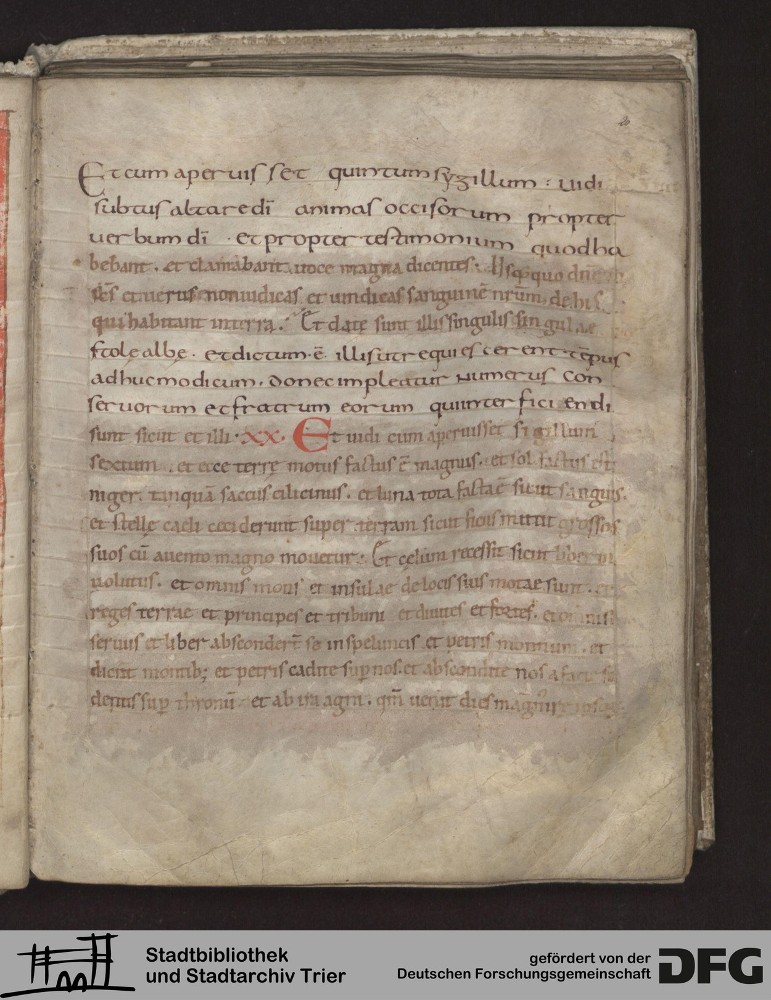 20
Et cum aperuisset quintum sygillum : uidi
subtus altare dī animas occisorum propter
uerbum dī · et propter testimonium quod ha
bebant · et clamabant uoce magna dicentes · Usq; quo dn̄e
sc̄s et uerus non iudicas et uindicas sanguinē nr̄um de his
qui habitant in terra · Et datę sunt illis singulis singulae
stole albę · et dictum · ē illis ut requiescerent tēpus
adhuc modicum · donec impleatur numerus con
seruorum et fratrum eorum qui interficiendi
sunt sicut et illi · XX · Et uidi cum aperuisset sigillum
sextum · et ecce terrę motus factus ē magnus · et sol factus est
niger · tanquā saccus cilicinus · et luna tota facta ē sicut sanguis ·
et stellę caeli ceciderunt super terram sicut ficus mittit grossos
suos cū a uento magno mouetur · Et cęlum recessit sicut liber in
uolutus · et omnis mons et insulae de locis suis motae sunt · et
reges terrae et principes et tribuni et diuites et fortes · et omnis
seruus et liber abscondert̄ se in speluncis et petris montium · et
dicunt montib; et petris cadite sup nos · et abscondite nos a facie se
dentis sup thronū · et ab ira agni · qm̄ uenit dies magnus irę ipsorum
Stadtbibliothek
und Stadtarchiv Trier
gefördert von der
Deutschen Forschungsgemeinschaft
DFG